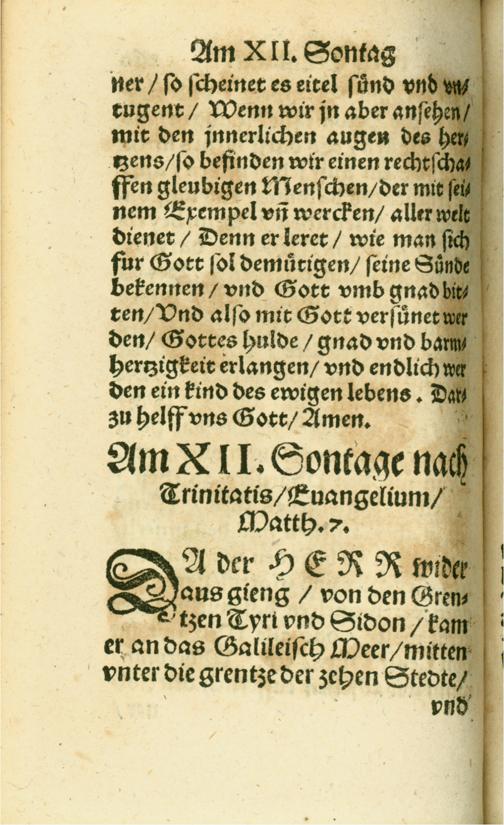 Am XII. Sontag
ner / so scheinet es eitel sünd vnd vn⸗
tugent / Wenn wir jn aber ansehen /
mit den jnnerlichen augen des her⸗
tzens / so befinden wir einen rechtscha⸗
ffen gleubigen Menschen / der mit sei⸗
nem Exempel vñ wercken / aller welt
dienet / Denn er leret / wie man sich
fur Gott sol demütigen / seine Sünde
bekennen / vnd Gott vmb gnad bit⸗
ten / Vnd also mit Gott versünet wer
den / Gottes hulde / gnad vnd barm⸗
hertzigkeit erlangen / vnd endlich wer
den ein kind des ewigen lebens. Dar⸗
zu helff vns Gott / Amen.
Am XII. Sontage nach
Trinitatis / Euangelium /
Matth. 7.
DA der HERR wider
aus gieng / von den Gren⸗
tzen Tyri vnd Sidon / kam
er an das Galileisch Meer / mitten
vnter die grentze der zehen Stedte /
vnd